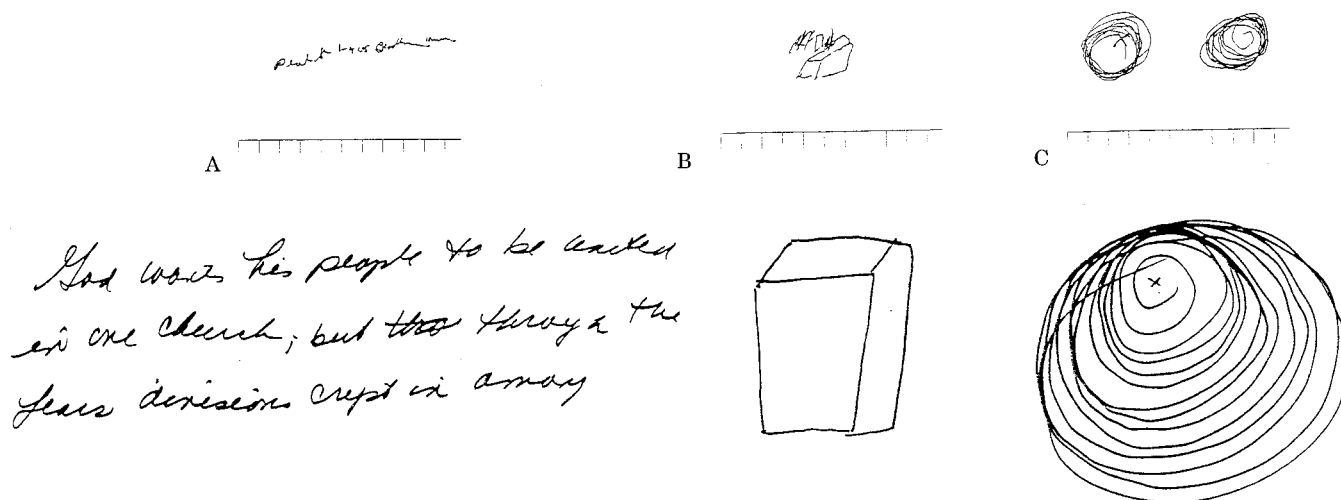 A
B
C
God wants his people to be united
in one church; but tho through the
years divisions crept in among